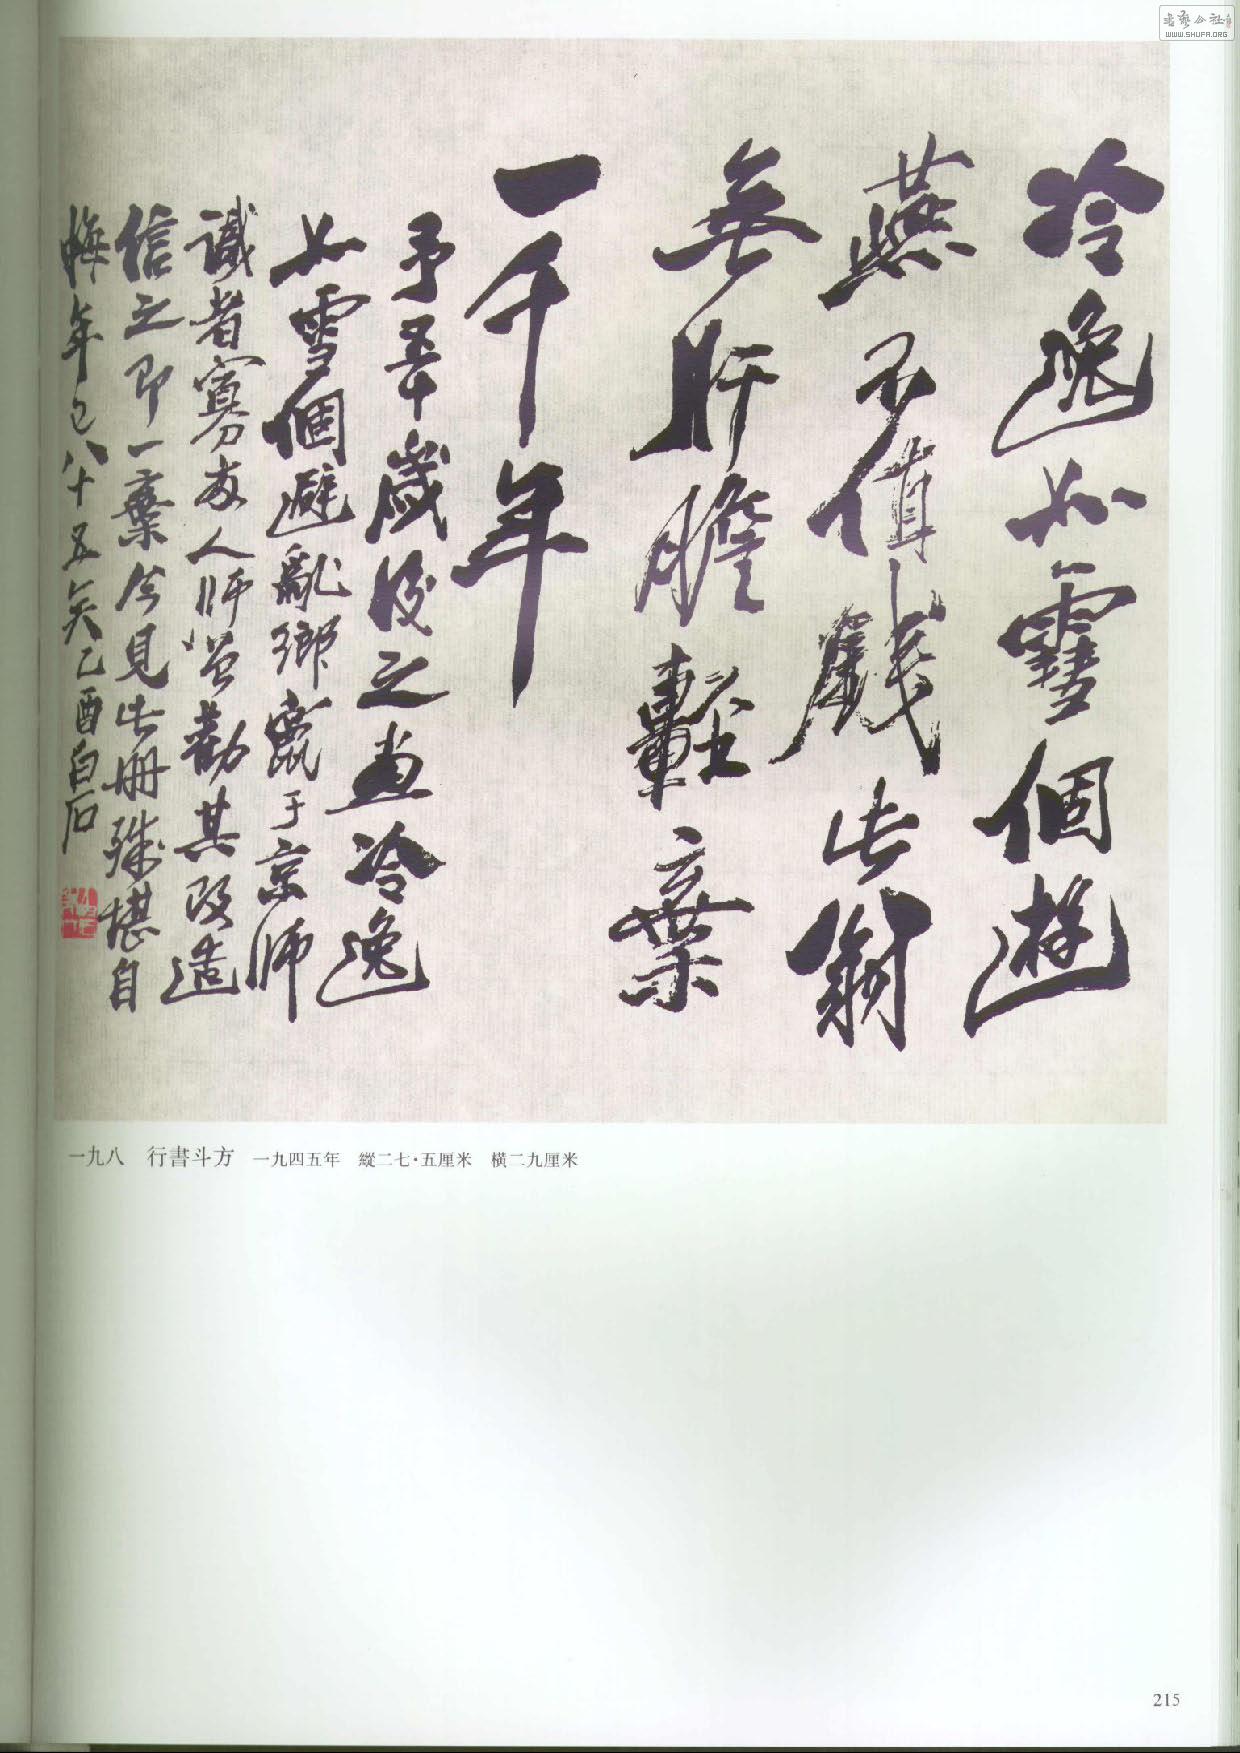 冷逸如雪個遊
燕不值錢此翁
無肝膽輕棄
一千年
予五十歲後之畫冷逸
如雪個避亂鄉竄于京師
識者寡友人師曾勸其改造
信之即一棄今見此冊殊堪自
悔年已八十五矣乙酉白石
一九八 行書斗方 一九四五年 縱二七·五厘米 橫二九厘米
215
書藝公社
WWW.SHUFA.ORG